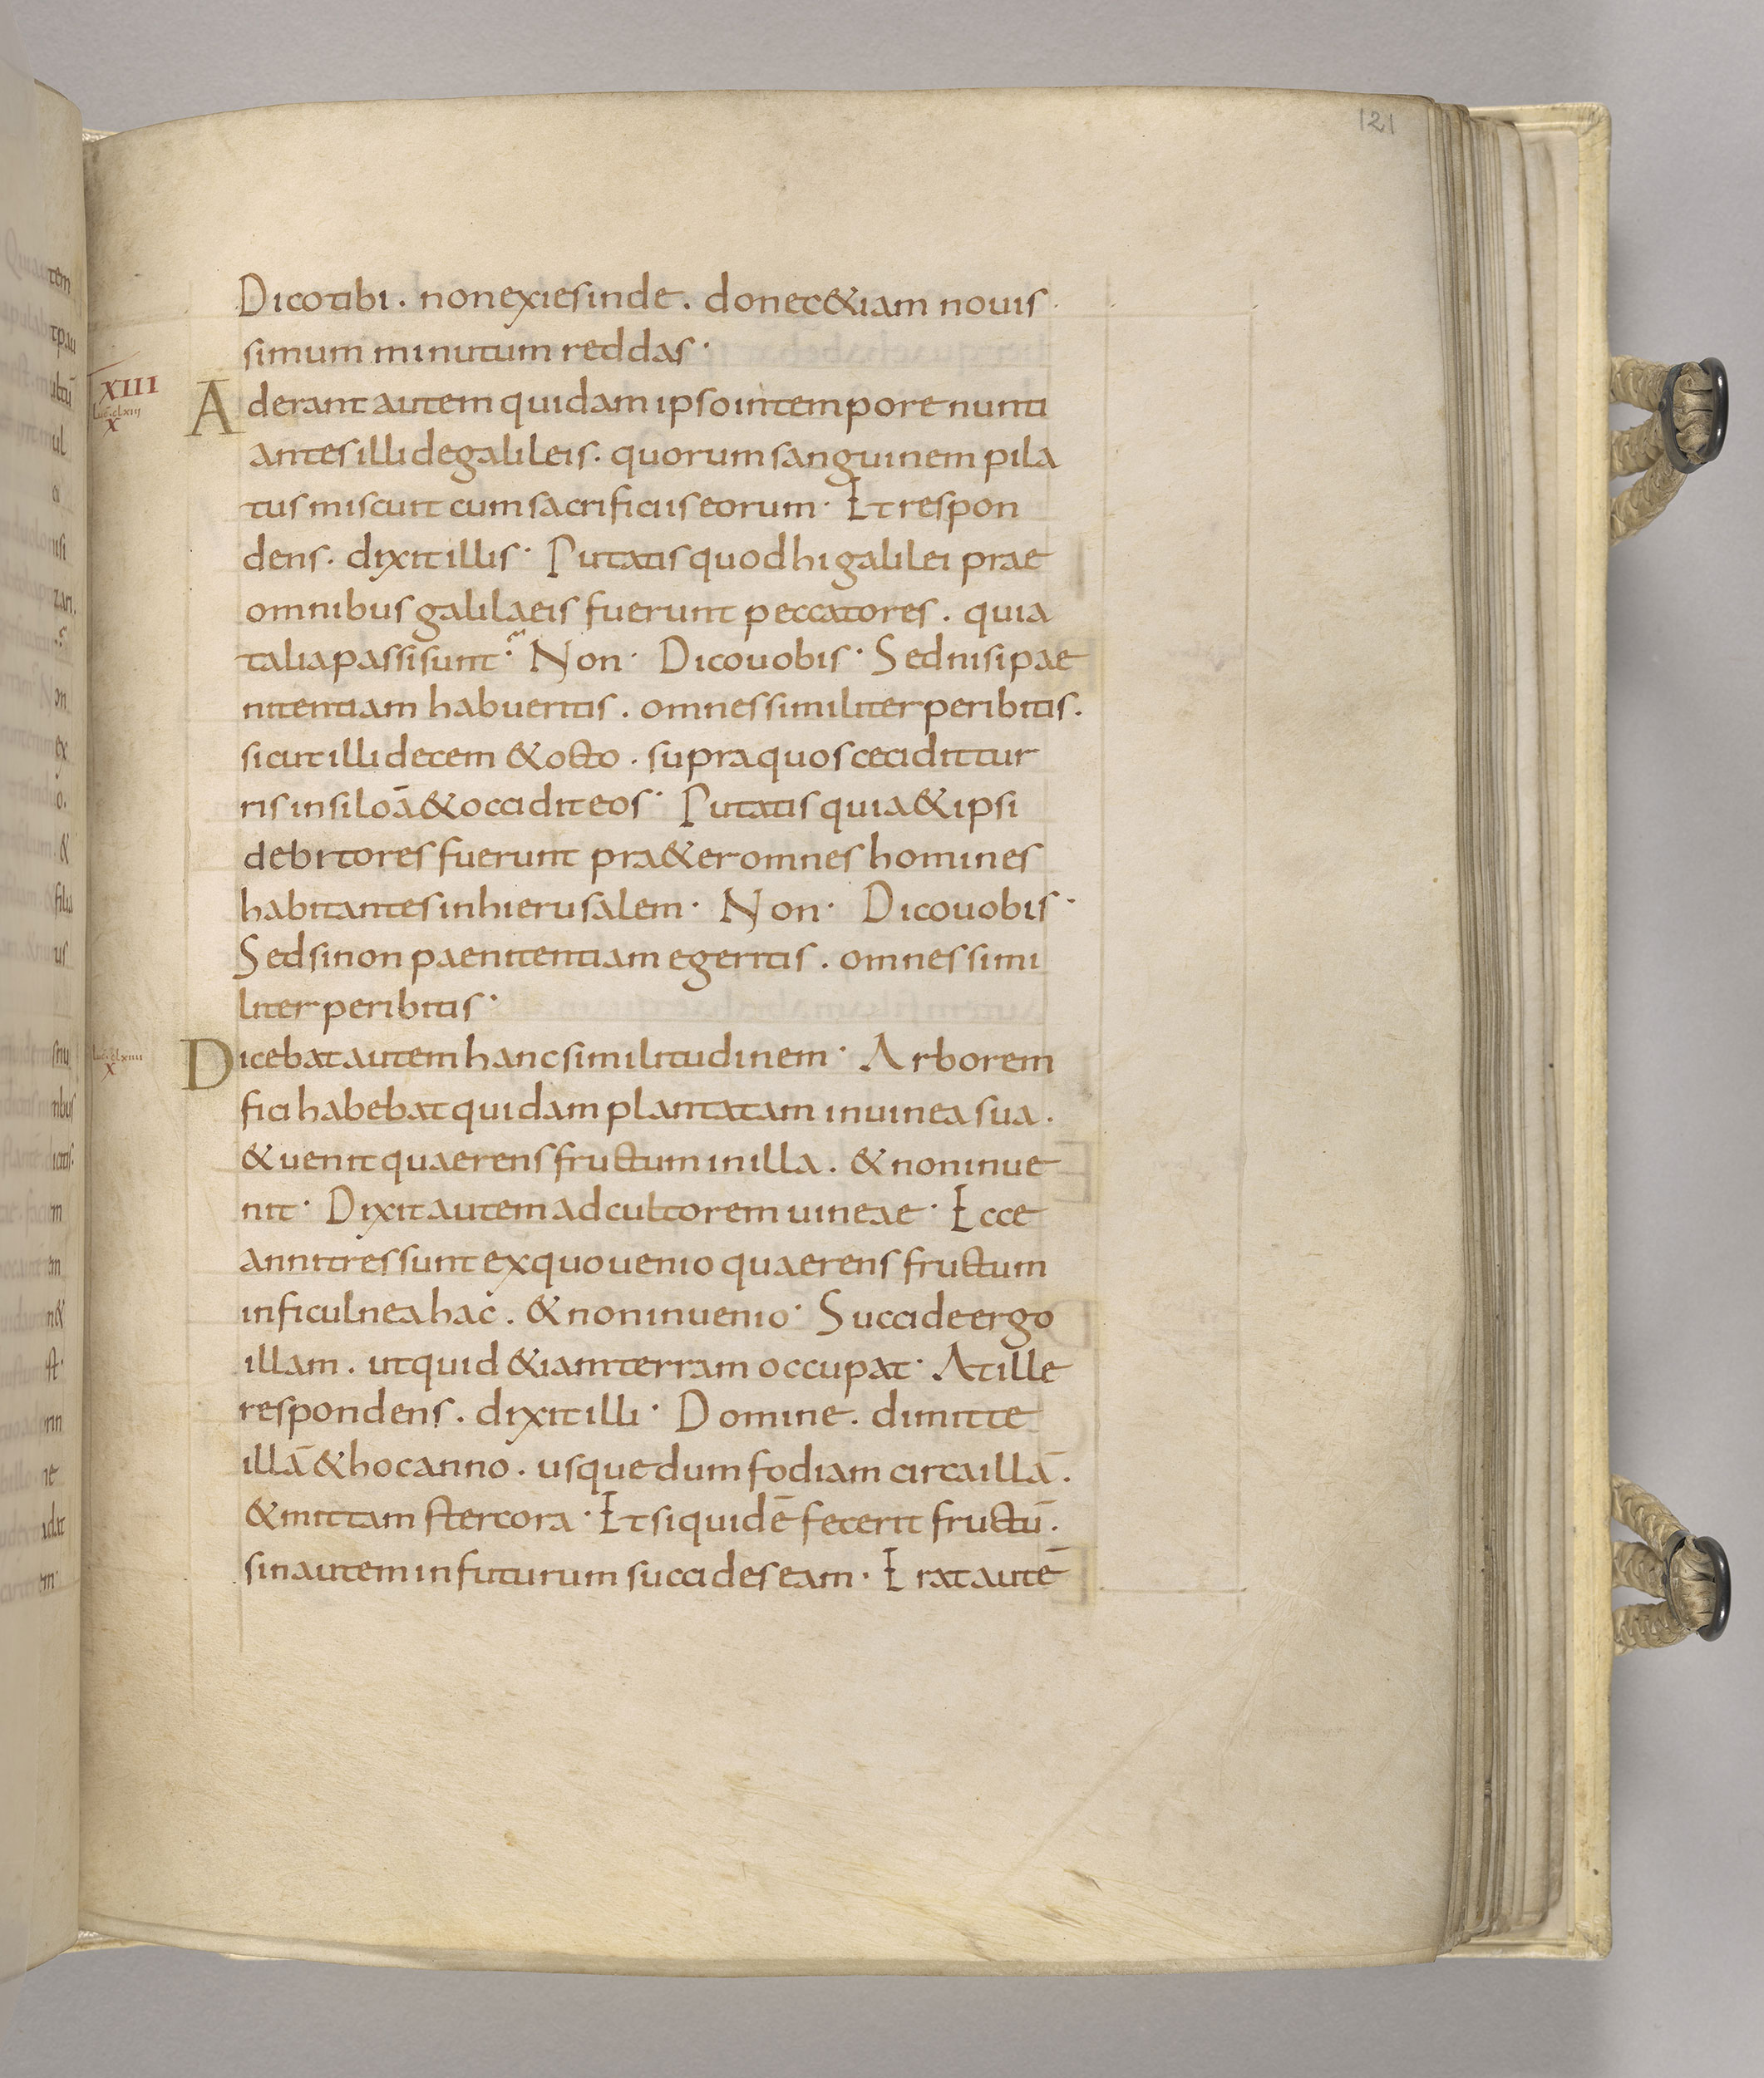 121
Dicotibi. nonexiesinde. donec&iam nouis
simum minutum reddas.
XIII
Luc clxiii
X
Aderant autem quidam ipsointempore nunti
antes illi degalileis. quorum sanguinem pila
tus miscuit cum sacrificiis eorum. Et respon
dens. dixit illis. Putatis quod hi galilei prae
omnibus galilaeis fuerunt peccatores. quia
talia passi sunt. Non. Dico uobis. Sed nisi pae
nitentiam habueritis. omnes similiter peribitis.
sicut illi decem & octo. supra quos cecidit tur
ris in siloā & occidit eos. Putatis quia & ipsi
debitores fuerunt pra&er omnes homines
habitantes in hierusalem. Non. Dico uobis.
Sed si non paenitentiam egeritis. omnes simi
liter peribitis.
Luc clxiiii
X
Dicebat autem hanc similitudinem. Arborem
fici habebat quidam plantatam in uinea sua.
& uenit quaerens fructum in illa. & non inue
nit. Dixit autem ad cultorem uineae. Ecce
anni tres sunt ex quo uenio quaerens fructum
in ficulnea hac. & non inuenio. Succide ergo
illam. ut quid &iam terram occupat. At ille
respondens. dixit illi. Domine. dimitte
illā & hoc anno. usque dum fodiam circa illā.
& mittam stercora. Et siquidē fecerit fructū.
sin autem in futurum succides eam. Erat autē